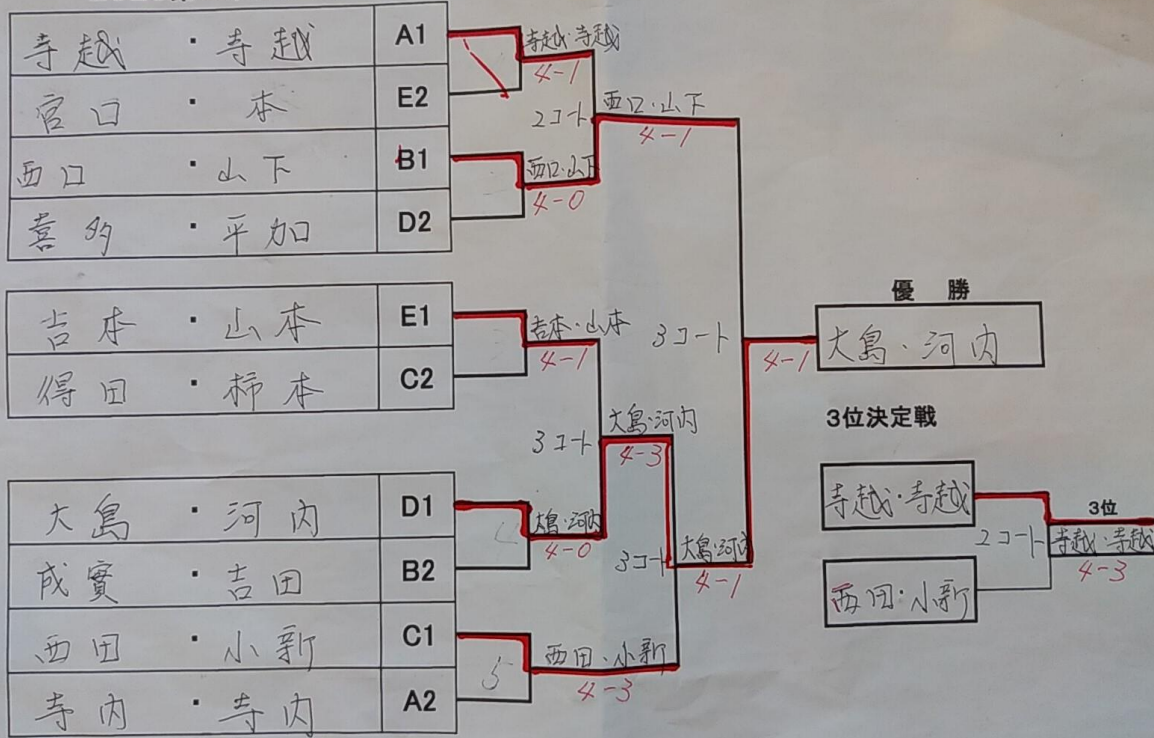 寺越・寺越 A1
宮口・本 E2
西口・山下 B1
喜多・平加 D2
吉本・山本 E1
得田・柿本 C2
大島・河内 D1
成實・吉田 B2
西田・小新 C1
寺内・寺内 A2
寺越・寺越
4-1
2コート
西口・山下
4-0
西口・山下
4-1
吉本・山本
4-1
3コート
大島・河内
4-0
大島・河内
4-3
3コート
西田・小新
4-3
5
大島・河内
4-1
3コート
4-1
優勝
大島・河内
3位決定戦
寺越・寺越
西田・小新
2コート
3位
寺越・寺越
4-3